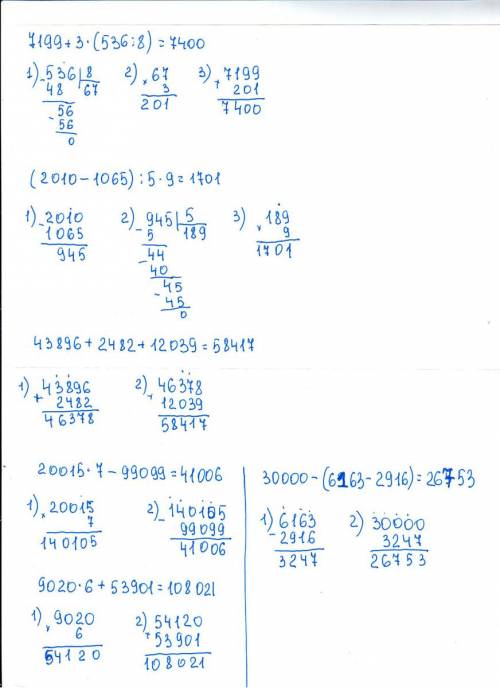 7199+3·(536:8)=7400
1) 536 8 2) 67 3) 7199
- 48 67 × 3 + 201
56 201 7400
- 56
0
(2010-1065):5·9=1701
1) 2010 2) 945 5 3) 189
- 1065 - 5 189 × 9
945 44 1701
- 40
45
- 45
0
43896+2482+12039=58417
1) 43896 2) 46378
+ 2482 + 12039
46378 58417
20015·7-99099=41006
1) 20015 2) 140105
× 7 - 99099
140105 41006
30000-(6163-2916)=26753
1) 6163 2) 30000
- 2916 - 3247
3247 26753
9020·6+53901=108021
1) 9020 2) 54120
× 6 + 53901
54120 108021